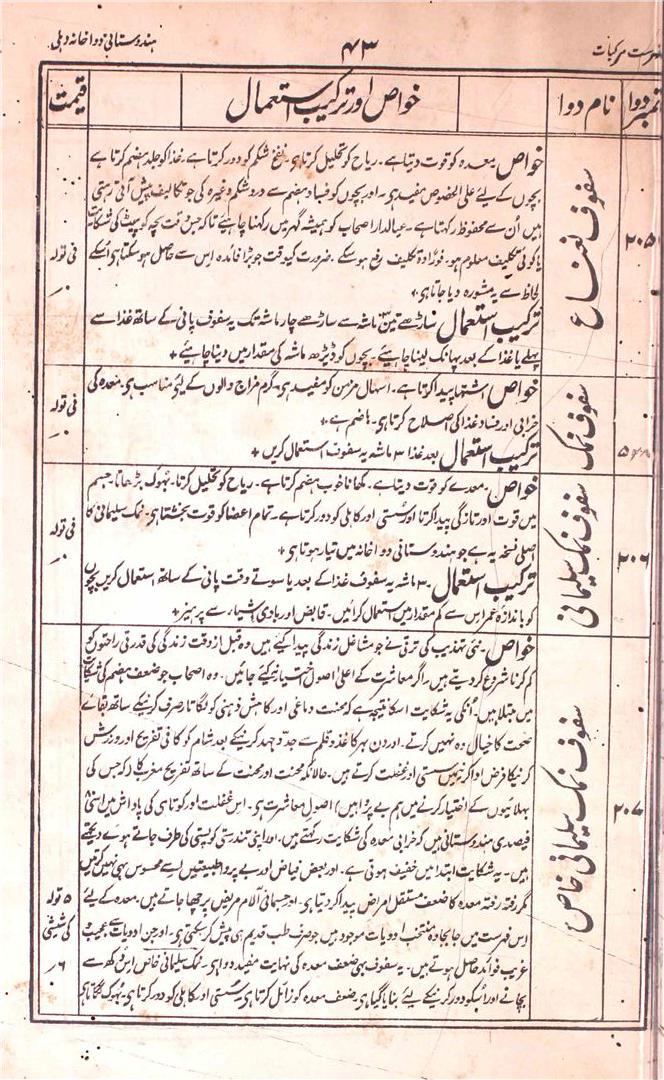 فہرست مرکبات
۴۳
ہندوستانی دواخانہ دہلی
نمبر دوا
نام دوا
خواص اور ترکیب استعمال
قیمت
۲۰۵
سفوف نعناع
خواص۔ معدہ کو قوت دیتا ہے۔ ریاح کو تحلیل کرتا ہی۔ نفخ شکم کو دور کرتا ہے۔ غذا کو جلد ہضم کرتا ہے
بچوں کے لیئے علی الخصوص مفید ہی۔ اور بچوں کو فساد ہضم سے درد شکم وغیرہ کی جو تکالیف پیش آتی رہتی
ہیں اُن سے محفوظ رکھتا ہے۔ عیالدار اصحاب کو ہمیشہ گھر میں رکھنا چاہیئے تاکہ جس وقت بچہ کو پیٹ کی شکایت
یا کوئی تکلیف معلوم ہو۔ فوراً وہ تکلیف رفع ہو سکے۔ ضرورت کیوقت جو بڑا فائدہ اس سے حاصل ہو سکتا ہی اُسکے
لحاظ سے یہ مشورہ دیا جاتا ہی
ترکیب استعمال ساڑھے تین ماشہ سے ساڑھے چار ماشہ تک یہ سفوف پانی کے ساتھ غذا سے
پہلے یا غذا کے بعد پھانک لینا چاہیئے۔ بچوں کو ڈیڑھ ماشہ کی مقدار میں دینا چاہیئے +
فی تولہ
سفوف نمک
خواص اشتہا پیدا کرتا ہے۔ اسہال مزمن کو مفید ہی۔ گرم مزاج والوں کے لیئے مناسب ہی۔ معدہ کی
خرابی اور فساد غذا کی اصلاح کرتا ہی۔ ہاضم ہے +
ترکیب استعمال بعد غذا ۳ ماشہ یہ سفوف استعمال کریں +
فی تولہ
۲۰۶
سفوف نمک سلیمانی
خواص۔ معدے کو قوت دیتا ہے۔ کھانا خوب ہضم کرتا ہے۔ ریاح کو تحلیل کرتا۔ بھوک بڑھاتا۔ جسم
میں قوت اور تازگی پیدا کرتا اور سستی اور کاہلی کو دور کرتا ہے۔ تمام اعضا کو قوت بخشتا ہی۔ نمک سلیمانی کا
اصلی نسخہ یہ ہے جو ہندوستانی دواخانہ میں تیار ہوتا ہی +
ترکیب استعمال۔ ۳ ماشہ یہ سفوف غذا کے بعد یا سوتے وقت پانی کے ساتھ استعمال کریں بچوں
کو باندازہ عمر اس سے کم مقدار میں استعمال کرائیں۔ قابض اور بادی اشیاء سے پرہیز +
فی تولہ
۲۰۷
سفوف نمک سلیمانی خاص
خواص۔ نئی تہذیب کی ترقی نے جو مشاغل زندگی پیدا کیئے ہیں وہ قبل از وقت زندگی کی قدرتی راحتوں کو
کم کرنا شروع کر دیتے ہیں۔ اگر معاشرت کے اعلی اصول اختیار نہ کیئے جائیں۔ وہ اصحاب جو ضعف ہضم کی شکایت
میں مبتلا ہیں۔ اُنکی یہ شکایت اسکا نتیجہ ہے کہ محنت دماغی اور کاہش ذہنی کو لگاتار صرف کرنیکے ساتھ بقائے
صحت کا خیال وہ نہیں کرتے۔ اور دن بھر کاغذ و قلم سے جدوجہد کرنیکے بعد شام کو کافی تفریح اور ورزش
کرنیکا فرض ادا کرنیمیں سستی اور غفلت کرتے ہیں۔ حالانکہ محنت اور محنت کے ساتھ تفریح مغرب کا (کہ جس کی
بھلائیوں کے اختیار کرنے میں ہم بے پروا ہیں) اصول معاشرت ہی۔ اس غفلت اور کوتاہی کی پاداش میں اسّی
فیصدی ہندوستانی ہیں کہ خرابی معدہ کی شکایت رکھتے ہیں۔ اور اپنی تندرستی کو پستی کی طرف جاتے ہوئے دیکھتے
ہیں۔ یہ شکایت ابتدا میں خفیف ہوتی ہے۔ اور بعض فیاض اور بے پروا طبیعتیں اسے محسوس بھی نہیں کرتیں
مگر رفتہ رفتہ معدہ کا ضعف مستقل امراض پیدا کر دیتا ہی۔ اور جسمانی آلام مریض پر چھا جاتے ہیں۔ معدہ کے لیئے
اس فہرست میں جابجا وہ منتخب ادویات موجود ہیں جو صرف طب قدیم ہی پیش کر سکتی ہی۔ اور جن ادویات سے عجیب
غریب فوائد حاصل ہوتے ہیں۔ یہ سفوف بھی ضعف معدہ کی نہایت مفید دوا ہی۔ نمک سلیمانی خاص اس دکھ سے
بچانے اور اسکو دور کرنیکے لیئے بنایا گیا ہی۔ ضعف معدہ کو زائل کرتا ہی۔ سستی اور کاہلی کو دور کرتا ہی۔ بھوک لگاتا ہی
۵ تولہ
کی شیشی
۶ر